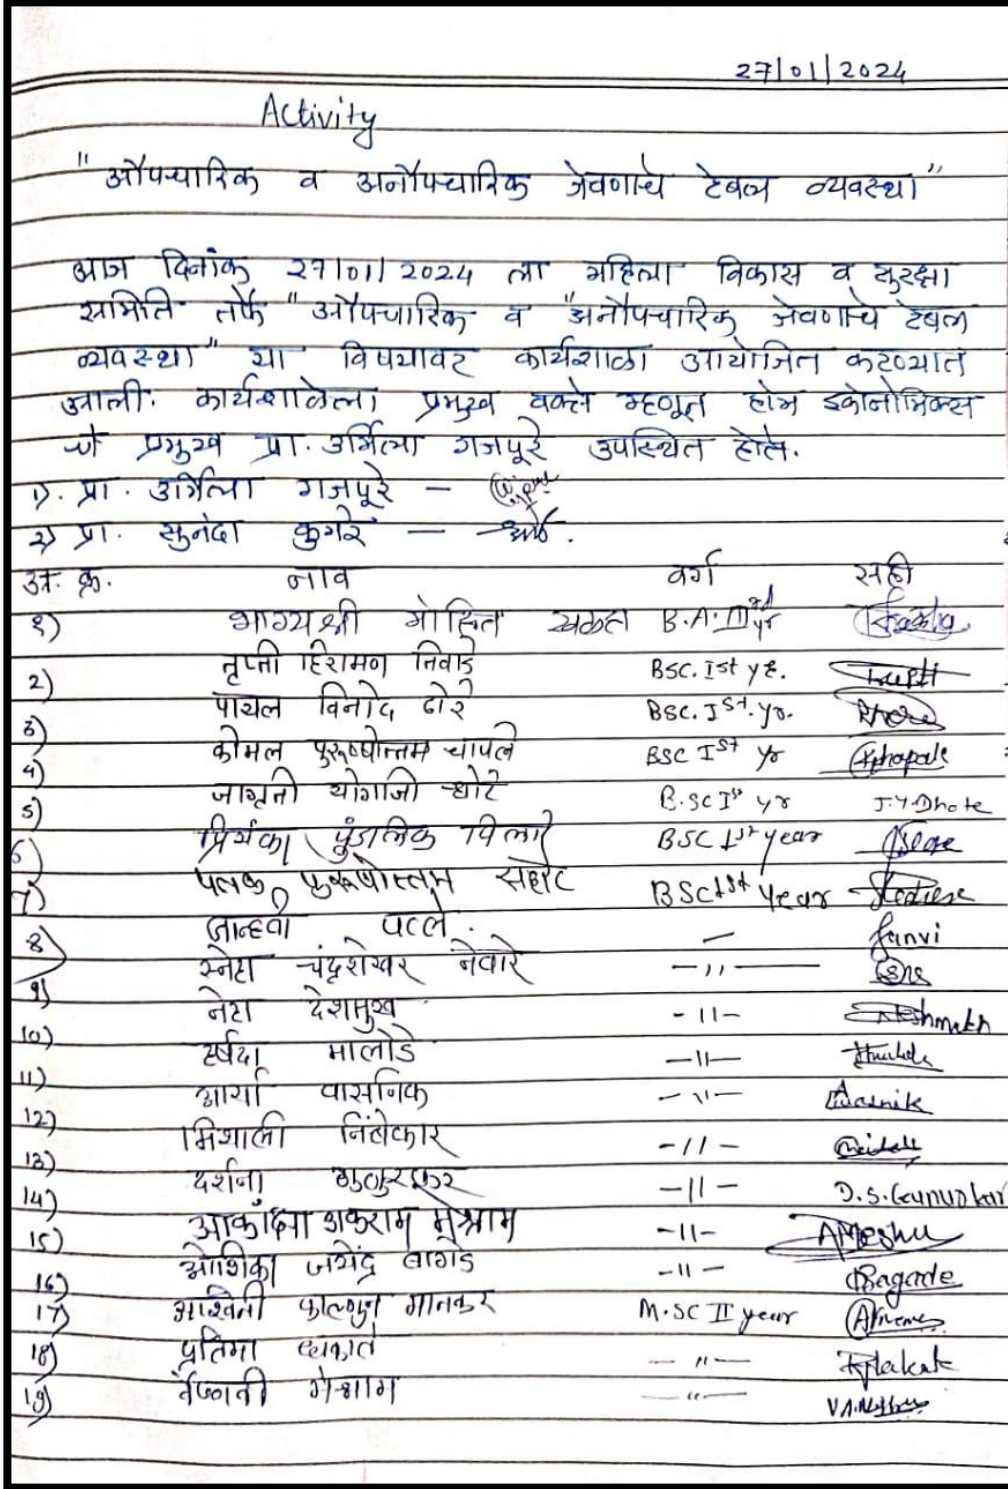 27/01/2024
Activity
"औपचारिक व अनौपचारिक जेवणाचे टेबल व्यवस्था"
आज दिनांक 27/01/2024 ला महिला विकास व सुरक्षा
समिति तर्फे "औपचारिक व "अनौपचारिक जेवणाचे टेबल
व्यवस्था" या विषयावर कार्यशाळा आयोजित करण्यात
आली. कार्यशाळेला प्रमुख वक्ते म्हणून होम इकोनोमिक्स
चे प्रमुख प्रा. उर्मिला गजपूरे उपस्थित होते.
१). प्रा. उर्मिला गजपूरे -
२) प्रा. सुनंदा कुमरे -
अ. क्र. नाव वर्ग सही
१) भाग्यश्री मोहित B.A. III yr
2) तृप्ती हिरामण निवाडे BSC. Ist yr. Trupti
3) पायल विनोद ढोरे BSC. Ist. yr. Dhore
4) कोमल पुरूषोत्तम चापले BSC Ist yr Kchapale
5) जागृती योगाजी धोटे B.SC Ist yr J.Y.Dhote
6) प्रियंका पुंडलिक BSC 1st year
7) पलक पुरूषोत्तम BSc 1st Year
8) जान्हवी पटले. — Janvi
9) स्नेहा चंद्रशेखर नेवारे -"- Sne
10) नेहा देशमुख -11- Deshmukh
11) हर्षदा मालोडे -11-
12) आर्या वासनिक -11- Wasnik
13) मिशाली निंबेकार -11-
14) दर्शना -11- D.S.
15) आकांक्षा मेश्राम -11- AMeshu
16) ओशिका जयेंद्र बागडे -11- Bagade
17) अश्विनी फाल्गुन मानकर M.SC II year
18) प्रतिमा लाकाते -"-
19) वैष्णवी मेश्राम -"-